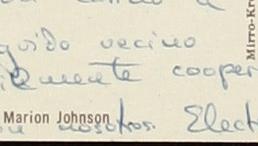 guido vecino
mente cooper
Marion Johnson
nosotros. Elect
Mirro-Kr